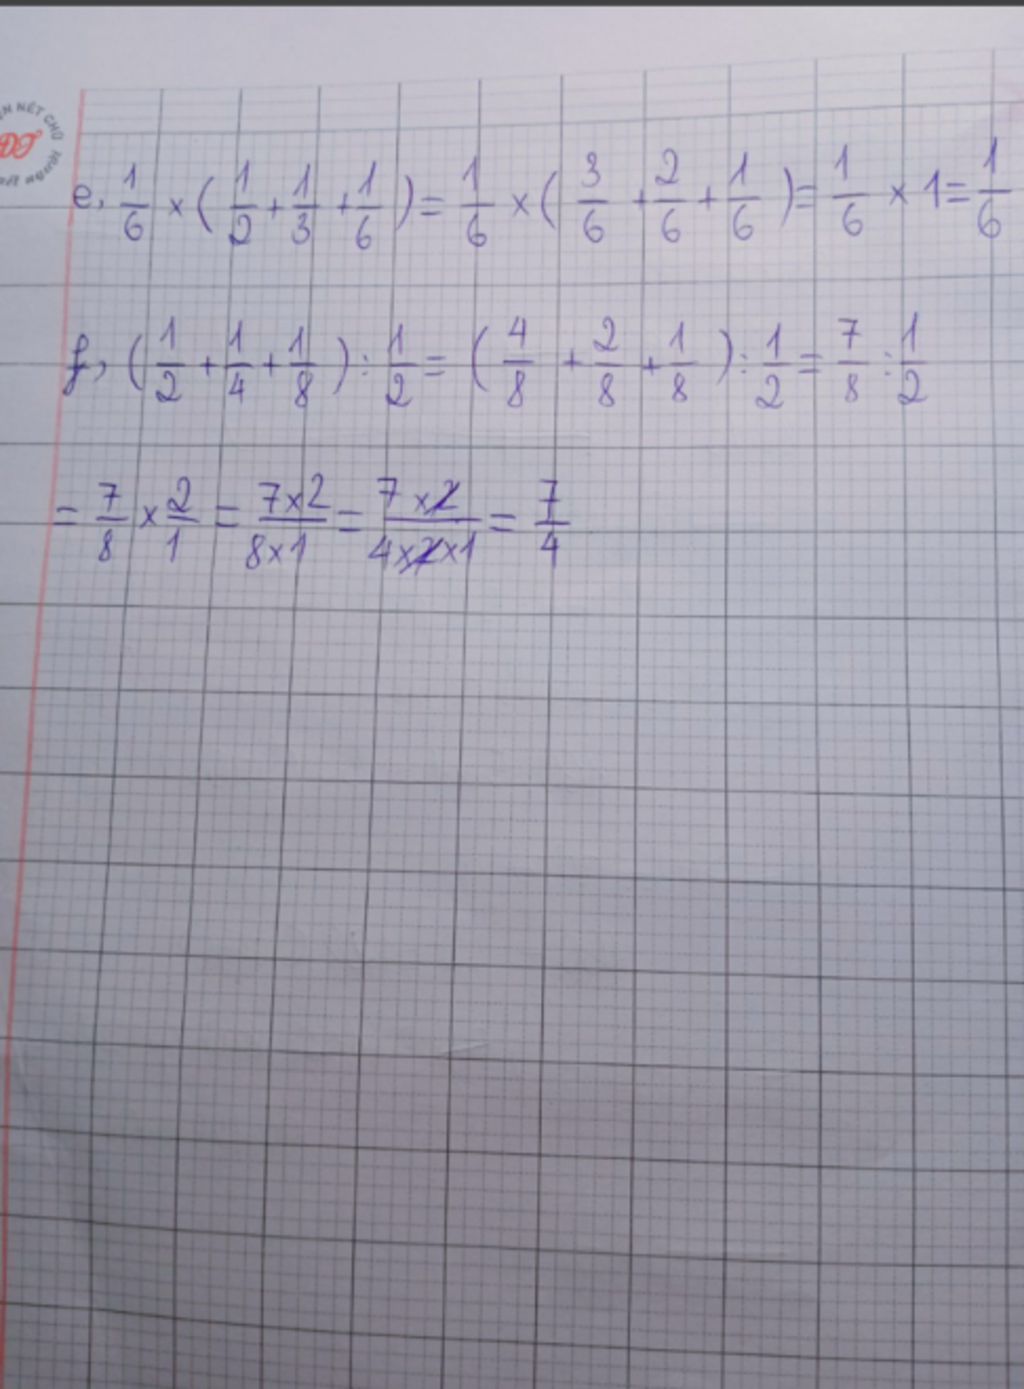 NÉT CHỮ
ĐT
e, 1/6 × (1/2 + 1/3 + 1/6) = 1/6 × (3/6 + 2/6 + 1/6) = 1/6 × 1 = 1/6
f, (1/2 + 1/4 + 1/8) : 1/2 = (4/8 + 2/8 + 1/8) : 1/2 = 7/8 : 1/2
= 7/8 × 2/1 = 7×2/8×1 = 7×2/4×2×1 = 7/4